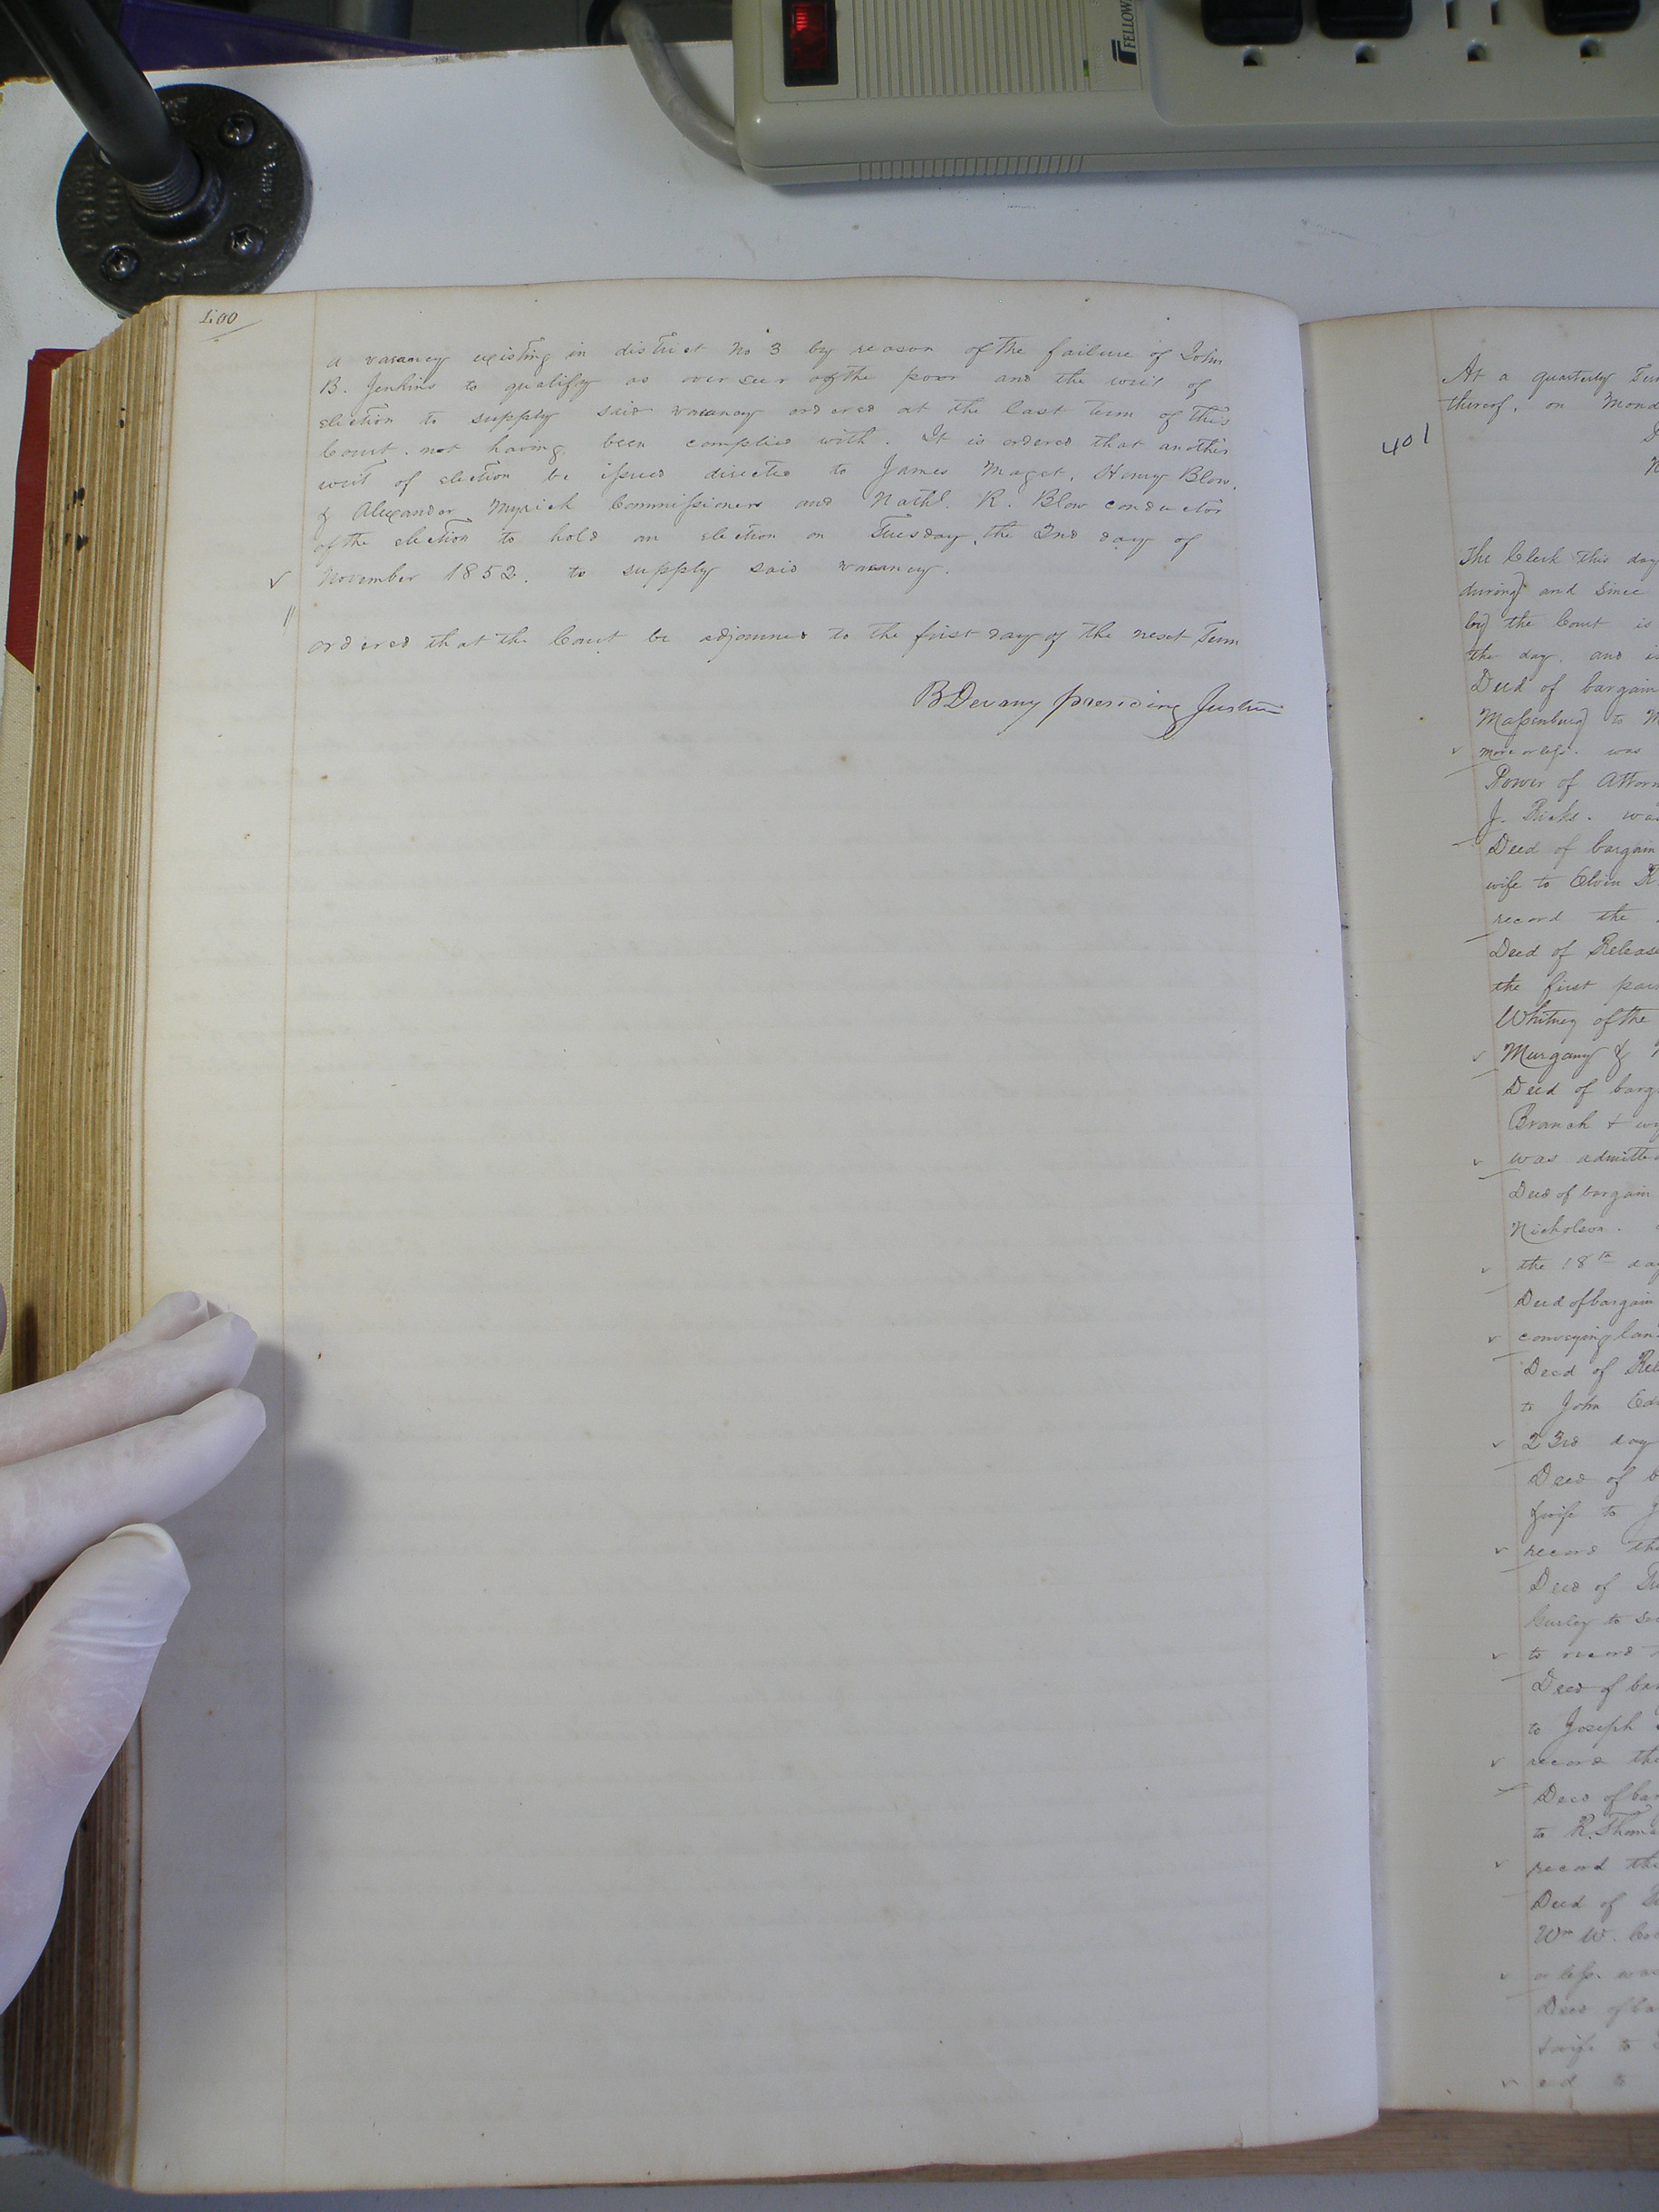 FELLOW
400
a vacancy existing in district No 3 by reason of the failure of John
B. Jenkins to qualify as overseer of the poor and the writ of
election to supply said vacancy ordered at the last term of this
Court. not having been complied with. It is ordered that another
writ of election be issued directed to James Maget, Henry Blow,
& Alexander Myrick Commissioners and Nathl. R. Blow conductor
of the election to hold an election on Tuesday, the 2nd day of
November 1852. to supply said vacancy.
ordered that the Court be adjourned to the first day of the next Term
B Devany presiding Justice
401
At a quarterly
thereof, on
The Clerk this day
during and since
by the Court is
the day. and
Deed of bargain
Massenburg to
more or less. was
Power of
J. Ricks. was
Deed of bargain
wife to Elvin R.
record the
Deed of Release
the first
Whitney of the
Murgany &
Deed of
Branch &
was
Deed of bargain
Nicholson.
the 18th
Deed of bargain
conveying
Deed of
to John
23rd day
Deed of
& wife to
record
Deed of
Gurley to
to record
Deed of
to Joseph
record
Deed of
to R.
record
Deed of
Wm W.
or less. was
Deed of
& wife to